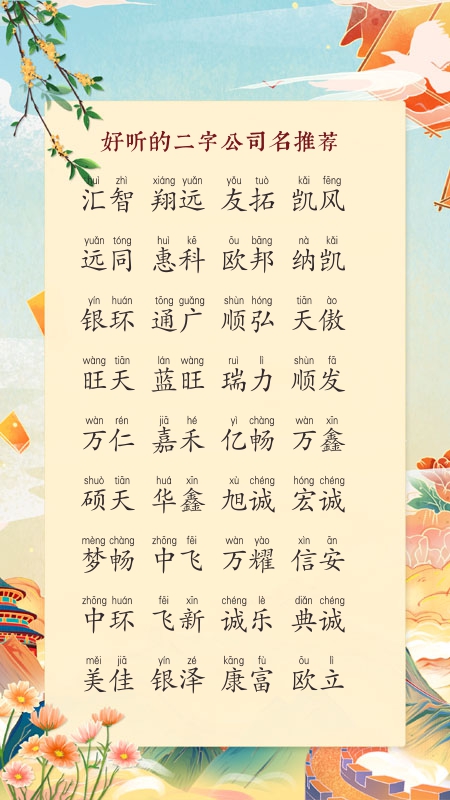 好听的二字公司名推荐
huì zhì xiáng yuǎn yǒu tuò kǎi fēng
汇智 翔远 友拓 凯风
yuǎn tóng huì kē ōu bāng nà kǎi
远同 惠科 欧邦 纳凯
yín huán tōng guǎng shùn hóng tiān ào
银环 通广 顺弘 天傲
wàng tiān lán wàng ruì lì shùn fā
旺天 蓝旺 瑞力 顺发
wàn rén jiā hé yì chàng wàn xīn
万仁 嘉禾 亿畅 万鑫
shuò tiān huá xīn xù chéng hóng chéng
硕天 华鑫 旭诚 宏诚
mèng chàng zhōng fēi wàn yào xìn ān
梦畅 中飞 万耀 信安
zhōng huán fēi xīn chéng lè diǎn chéng
中环 飞新 诚乐 典诚
měi jiā yín zé kāng fù ōu lì
美佳 银泽 康富 欧立